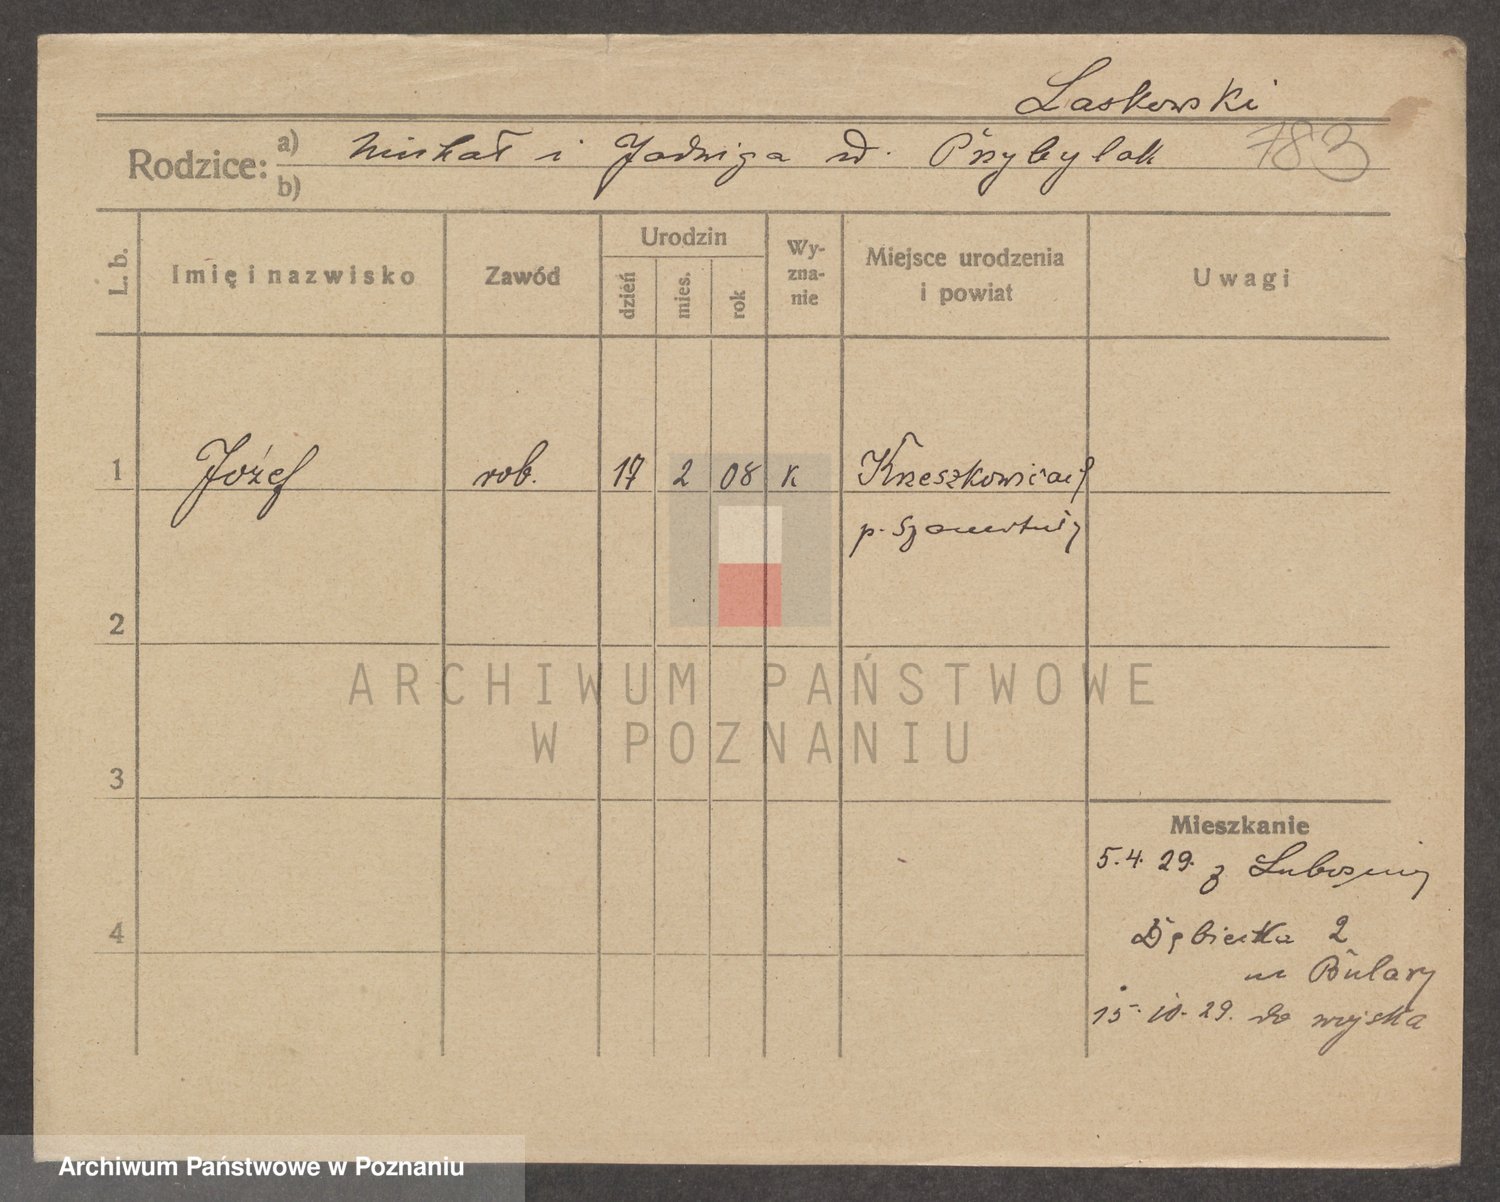 Laskowski
Rodzice: a) Michał i Jadwiga d. Przybylak 783
b)
L. b. Imię i nazwisko Zawód Urodzin dzień mies. rok Wyznanie Miejsce urodzenia i powiat Uwagi
1 Józef rob. 17 2 08 k Krzeszkowicach
p. Szamotuły
2
ARCHIWUM PAŃSTWOWE
W POZNANIU
3
Mieszkanie
5.4.29. z Lubosiny
4 2
u
15.10.29. do wojska
Archiwum Państwowe w Poznaniu